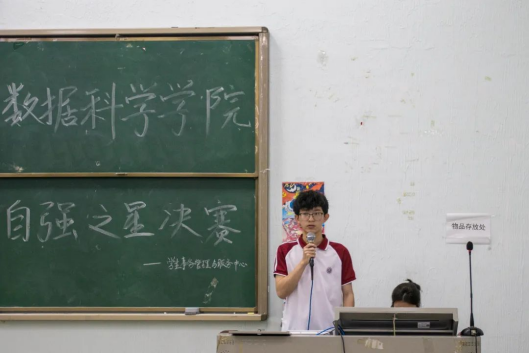 数据科学学院
自强之星决赛
——学生事务管理与服务中心
物品存放处